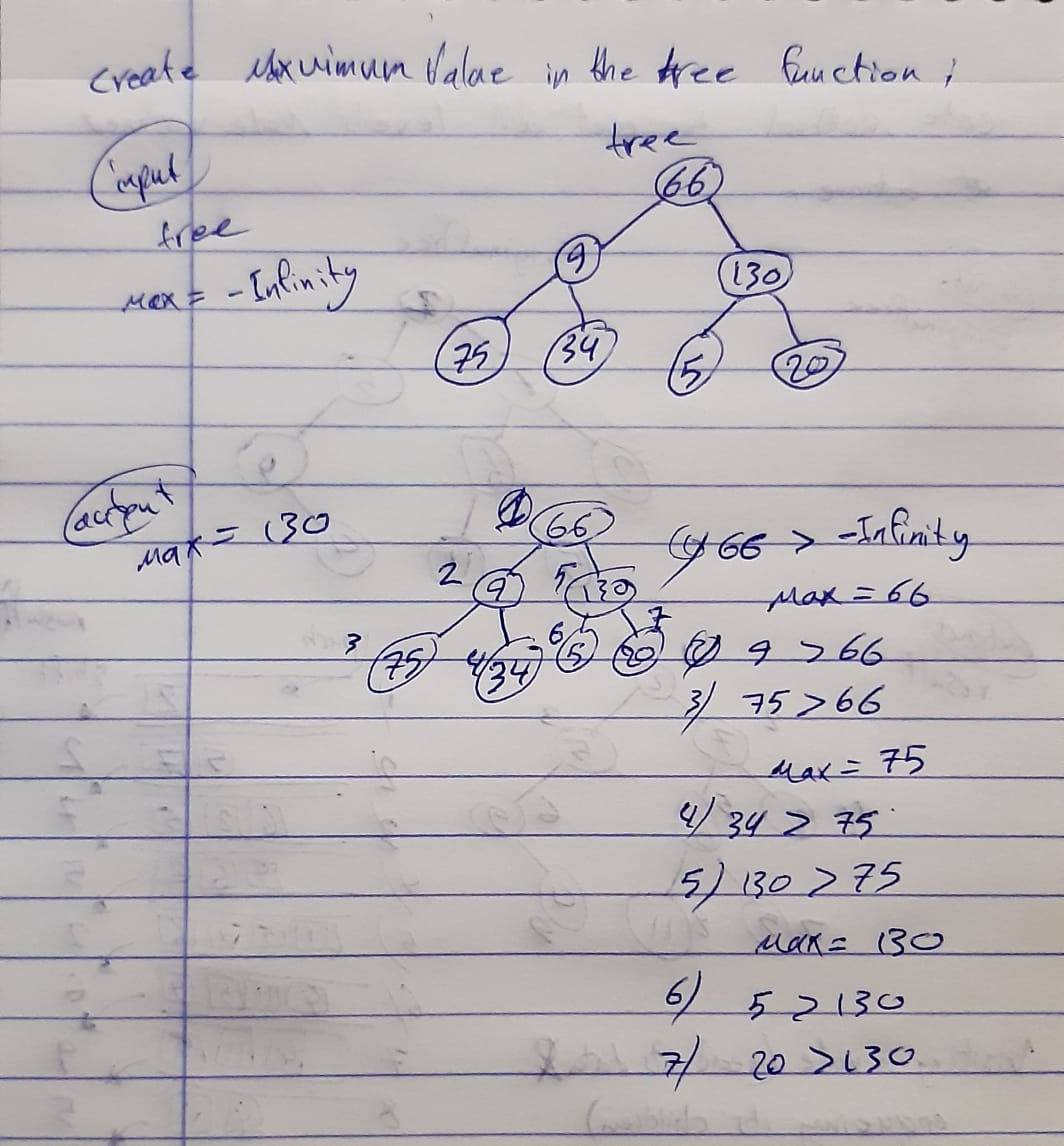 create Maxuimum Valae in the tree function;
input
tree
max = -Infinity
tree
66
9 130
75 34 5 20
output
max = 130
1 66
2 9 5 130
3 75 4 34 6 5 7 20
1) 66 > -Infinity
max = 66
2) 9 > 66
3) 75 > 66
max = 75
4) 34 > 75
5) 130 > 75
max = 130
6) 5 > 130
7) 20 > 130